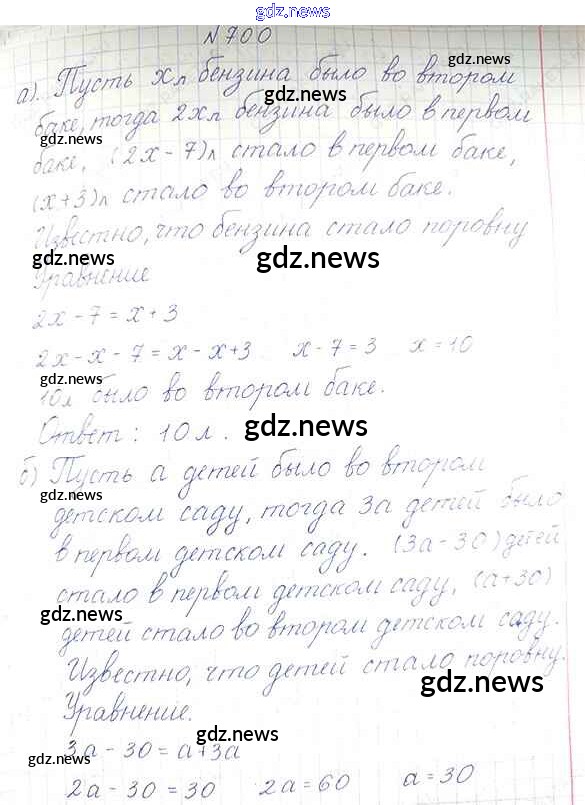 gdz.news
N 700
а). Пусть x л бензина было во втором
gdz.news
баке, тогда 2x л бензина было в первом
gdz.news
баке, (2x - 7) л стало в первом баке,
(x+3) л стало во втором баке.
Известно, что бензина стало поровну
gdz.news
gdz.news
Уравнение
2x - 7 = x + 3
2x - x - 7 = x - x + 3 x - 7 = 3 x = 10
gdz.news
10 л было во втором баке.
Ответ: 10 л.
gdz.news
б) Пусть а детей было во втором
gdz.news
детском саду, тогда 3а детей было
в первом детском саду. (3а - 30) детей
стало в первом детском саду, (а+30)
gdz.news
детей стало во втором детском саду.
Известно, что детей стало поровну.
gdz.news
Уравнение.
3а - 30 = а + 3а
gdz.news
2а - 30 = 30 2а = 60 а = 30
gdz.news